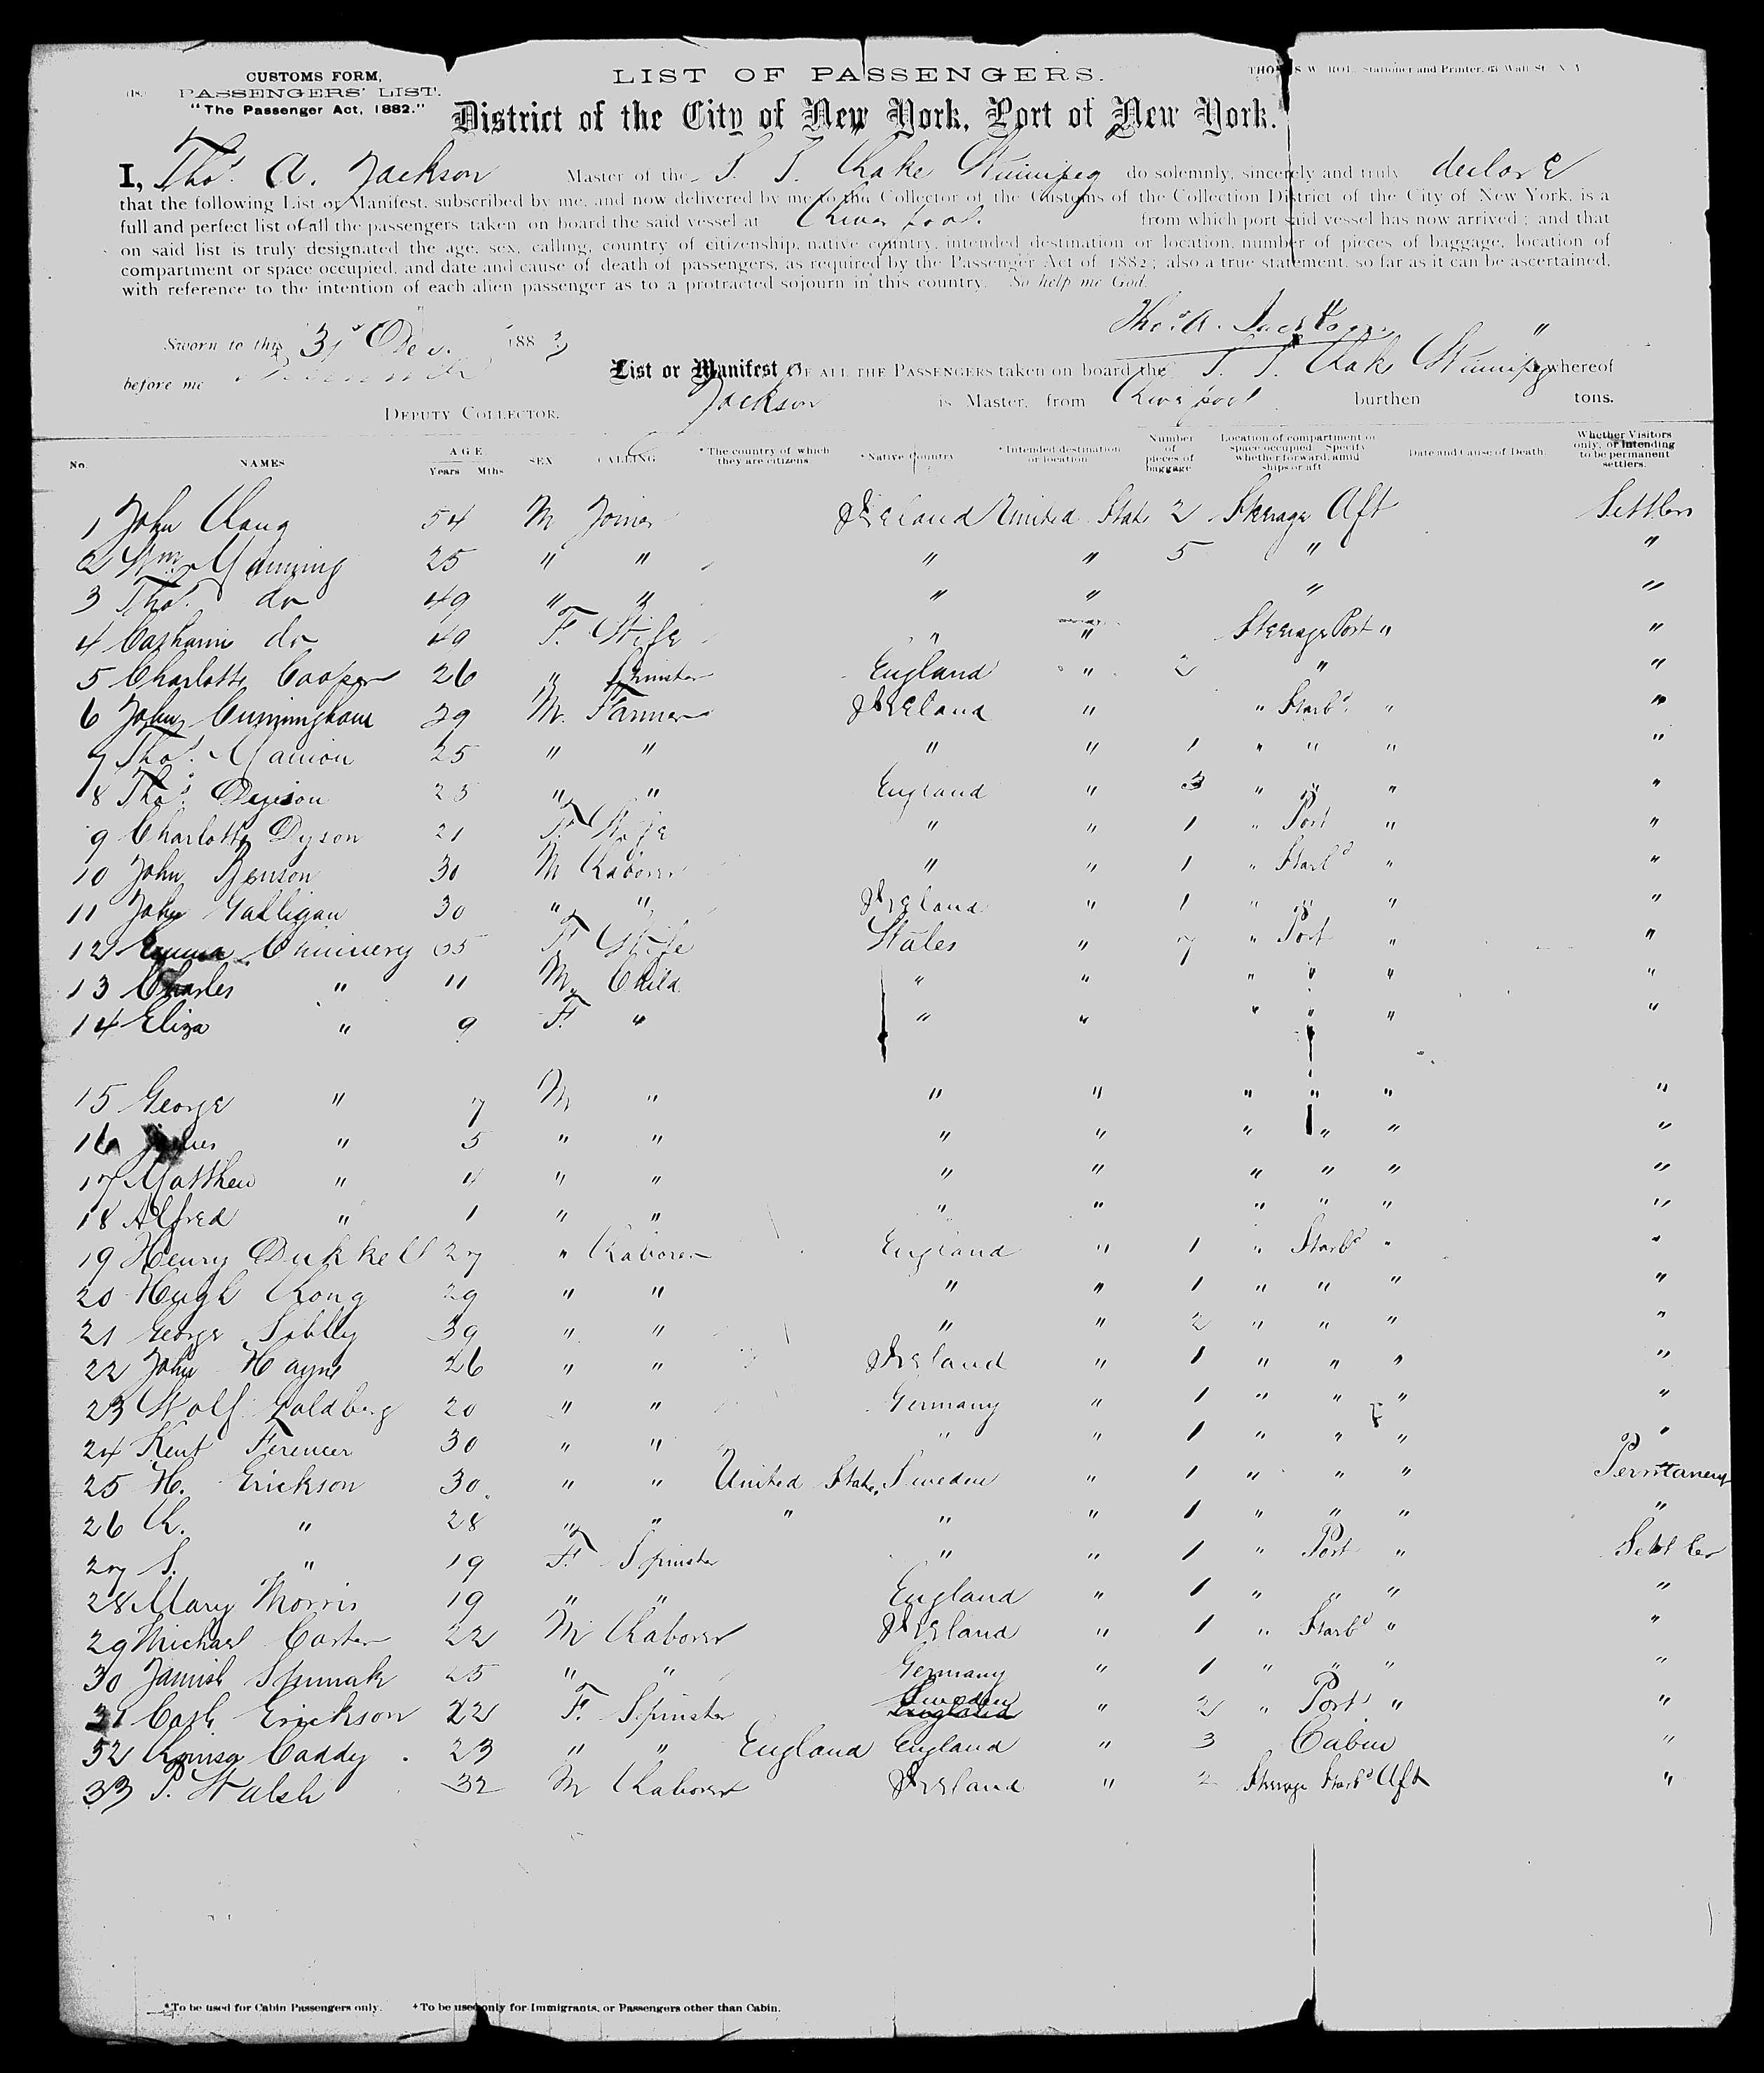 CUSTOMS FORM,
PASSENGERS' LIST.
"The Passenger Act, 1882."
LIST OF PASSENGERS.
Stationer and Printer, 63 Wall St. N. Y.
District of the City of New York, Port of New York.
I, Thos. A. Jackson Master of the S. S. Lake Winnipeg do solemnly, sincerely and truly declare
that the following List or Manifest, subscribed by me, and now delivered by me to the Collector of the Customs of the Collection District of the City of New York, is a
full and perfect list of all the passengers taken on board the said vessel at Liverpool. from which port said vessel has now arrived; and that
on said list is truly designated the age, sex, calling, country of citizenship, native country, intended destination or location, number of pieces of baggage, location of
compartment or space occupied, and date and cause of death of passengers, as required by the Passenger Act of 1882; also a true statement, so far as it can be ascertained,
with reference to the intention of each alien passenger as to a protracted sojourn in this country. So help me God.
Thos. A. Jackson
Sworn to this 31st Dec. 1883
before me
List or Manifest OF ALL THE PASSENGERS taken on board the S. S. Lake Winnipeg whereof
DEPUTY COLLECTOR.
Jackson is Master, from Liverpool burthen tons.
No. NAMES AGE Years Mths SEX CALLING *The country of which they are citizens +Native Country +Intended destination or location Number of pieces of baggage Location of compartment or space occupied. Specify whether forward, amid ships or aft Date and Cause of Death. Whether Visitors only, or Intending to be permanent settlers.
1 John Lang 54 M Joiner Ireland United State 2 Steerage Aft Settlers
2 Wm Manning 25 " " " " 5 " "
3 Thos. do 49 " " " " " "
4 Catharin do 49 F. Wife " " Steerage Port " "
5 Charlotte Cooper 26 " Spinster England " 2 " "
6 John Cunningham 29 M. Farmer Ireland " " Starbd. " "
7 Thos. Manion 25 " " " " 1 " " " "
8 Thos. Dyson 25 " " England " 3 " " " "
9 Charlotte Dyson 21 F. Wife " " 1 " Port " "
10 John Benson 30 M Laborer " " 1 " Starbd " "
11 John Galligan 30 " " Ireland " 1 " " " "
12 Emma Chinnery 35 F Wife Wales " 7 " Port " "
13 Charles " 11 M. Child " " " " " "
14 Eliza " 9 F. " " " " " " "
15 George " 7 M " " " " " " "
16 James " 5 " " " " " " " "
17 Matthew " 4 " " " " " " " "
18 Alfred " 1 " " " " " " " "
19 Henry Dukkell 27 " Laborer England " 1 " Starbd " "
20 Hugh Long 29 " " " " 1 " " " "
21 George Sibbly 39 " " " " 2 " " " "
22 John Hayne 26 " " Ireland " 1 " " " "
23 Wolf Goldberg 20 " " Germany " 1 " " " "
24 Kent Ferencer 30 " " " " 1 " " " "
25 H. Erickson 30 " " United State, Sweden " 1 " " " Permtanent
26 L. " 28 " " " " " 1 " " " "
27 S. " 19 F. Spinster " " 1 " Port " Settler
28 Mary Morris 19 " " England " 1 " " " "
29 Michael Carter 22 M Laborer Ireland " 1 " Starbd " "
30 25 " " Germany " 1 " " " "
31 Cath Erickson 22 F. Spinster Sweden " 2 " Port " "
32 Louisa Caddy. 23 " " England England " 3 Cabin "
33 P. Walsh 32 M Laborer Ireland " 2 Steerage Starbd Aft "
*To be used for Cabin Passengers only. +To be used only for Immigrants, or Passengers other than Cabin.